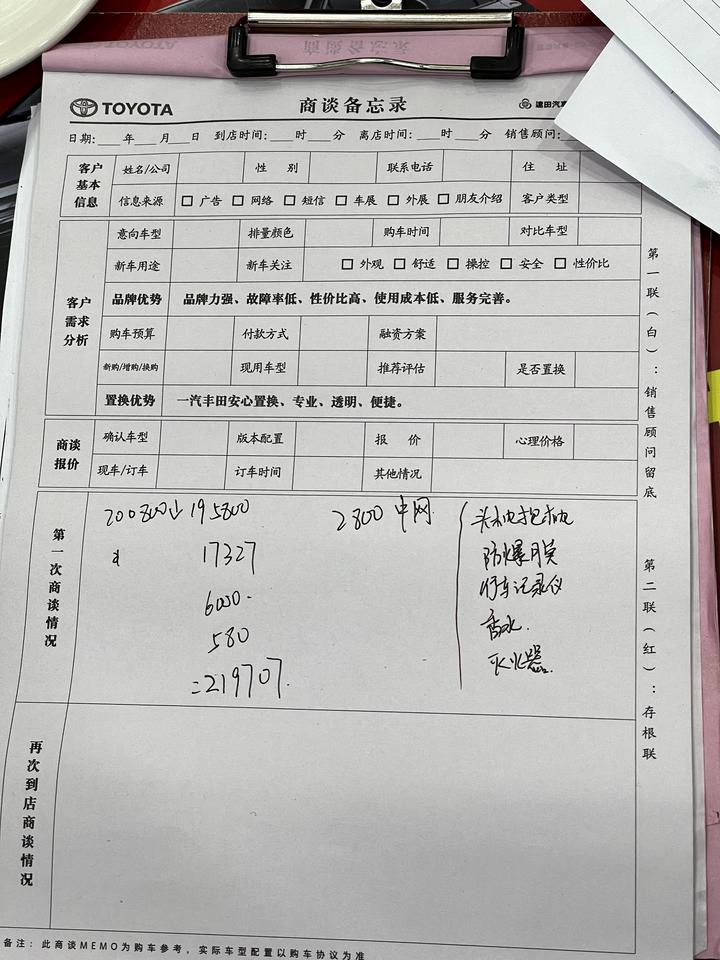 TOYOTA 商谈备忘录 建田汽
日期:___年___月___日 到店时间:___时___分 离店时间:___时___分 销售顾问:
客户基本信息
姓名/公司 性 别 联系电话 住 址
信息来源 □ 广告 □ 网络 □ 短信 □ 车展 □ 外展 □ 朋友介绍 客户类型
客户需求分析
意向车型 排量颜色 购车时间 对比车型
新车用途 新车关注 □ 外观 □ 舒适 □ 操控 □ 安全 □ 性价比
品牌优势 品牌力强、故障率低、性价比高、使用成本低、服务完善。
购车预算 付款方式 融资方案
新购/增购/换购 现用车型 推荐评估 是否置换
置换优势 一汽丰田安心置换、专业、透明、便捷。
商谈报价
确认车型 版本配置 报 价 心理价格
现车/订车 订车时间 其他情况
第一次商谈情况
200800 195800 2800 中网
17327
6000.
580
=219707.
防爆膜
行车记录仪
香水.
灭火器.
再次到店商谈情况
第一联(白):销售顾问留底
第二联(红):存根联
备注:此商谈MEMO为购车参考,实际车型配置以购车协议为准